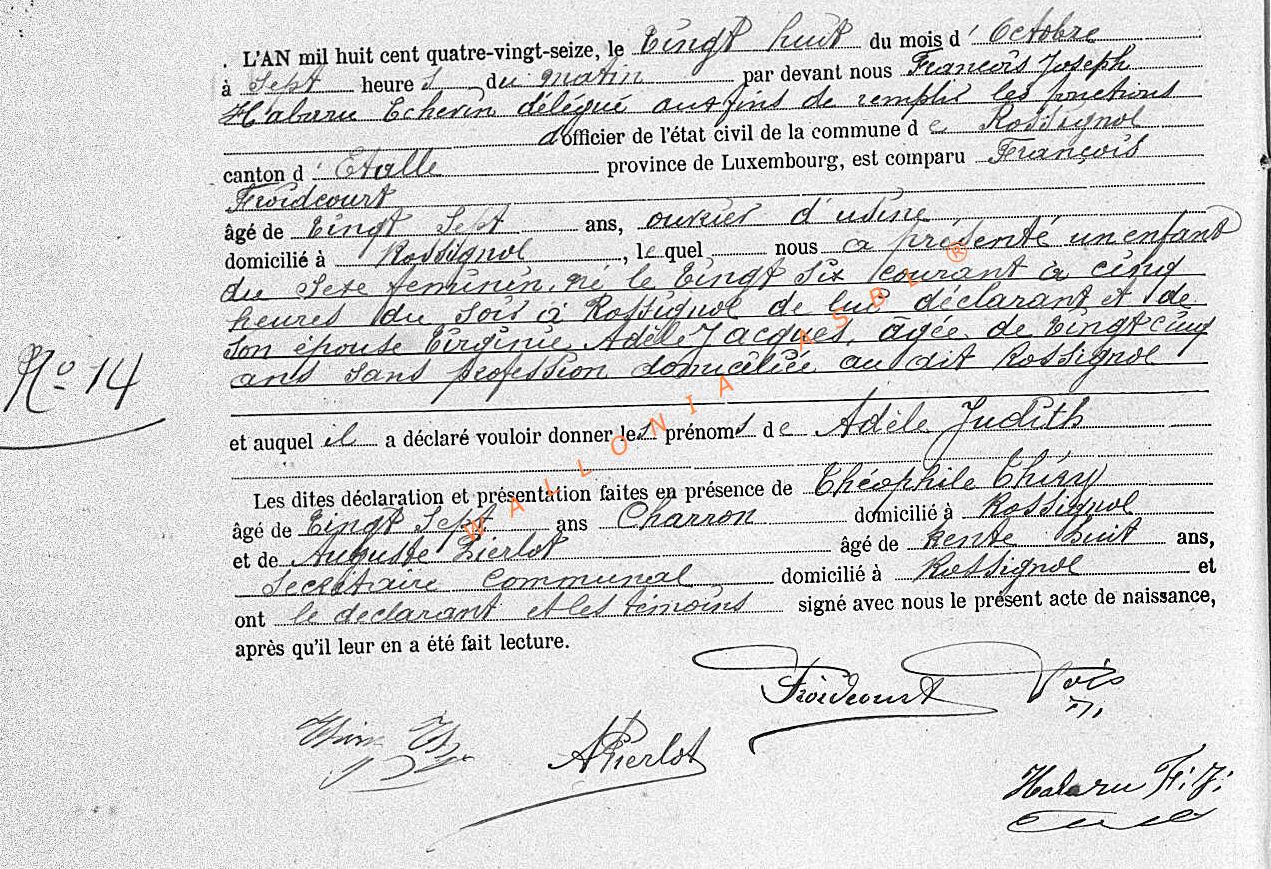 . L'AN mil huit cent quatre-vingt-seize, le Vingt huit du mois d' Octobre
à Sept heure s du matin par devant nous François Joseph
Habaru Echevin délégué aux fins de remplir les fonctions
d'officier de l'état civil de la commune de Rossignol
canton d' Etalle province de Luxembourg, est comparu François
Froidcourt
âgé de Vingt Sept ans, ouvrier d'usine
domicilié à Rossignol, lequel nous a présenté un enfant
du Sexe féminin, né le Vingt Six courant à cinq
heures du soir à Rossignol de lui déclarant et de
son épouse Virginie Adèle Jacques, âgée de Vingt cinq
ans sans profession domiciliée au dit Rossignol
No 14
et auquel il a déclaré vouloir donner les prénoms de Adèle Judith
Les dites déclaration et présentation faites en présence de Théophile Thiry
âgé de Vingt Sept ans Charron domicilié à Rossignol
et de Auguste Pierlot âgé de trente huit ans,
Secrétaire Communal domicilié à Rossignol et
ont le déclarant et les témoins signé avec nous le présent acte de naissance,
après qu'il leur en a été fait lecture.
Froidcourt Fois
APierlot
Habaru F. J.
WALLONIA ASBL ®